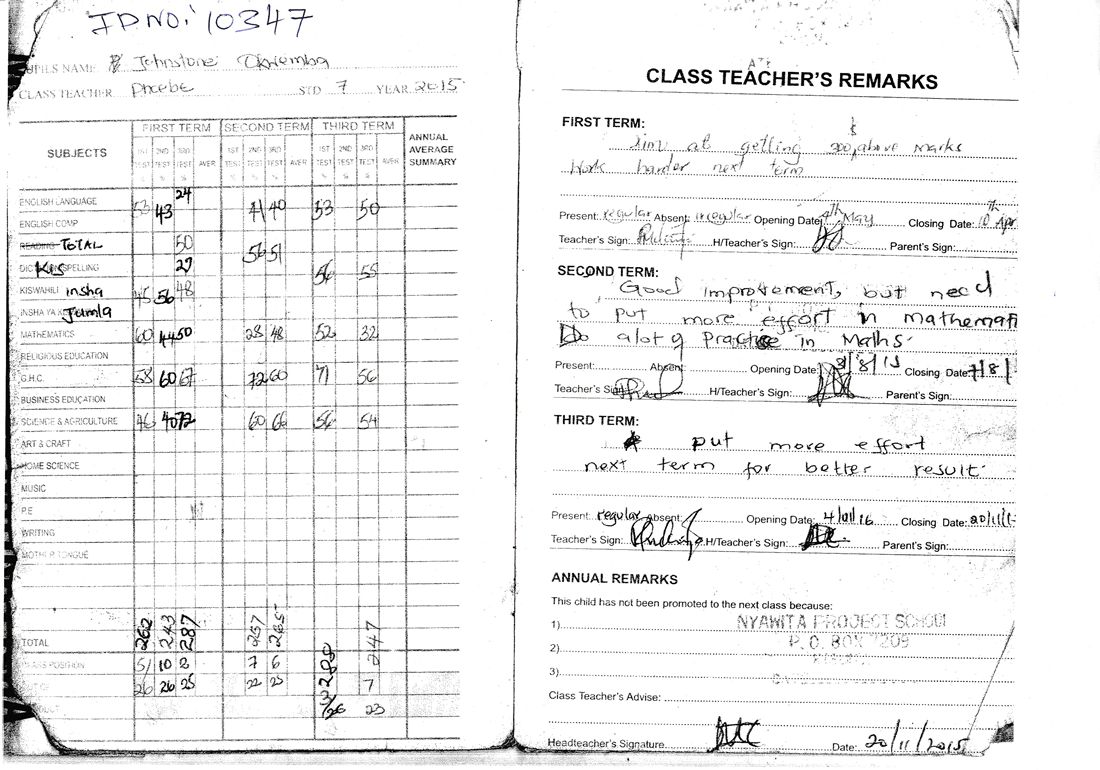 ID NO: 10347
PUPILS NAME Johnstone Okwemba
CLASS TEACHER Phoebe STD 7 YEAR 2015
SUBJECTS FIRST TERM SECOND TERM THIRD TERM ANNUAL AVERAGE SUMMARY
1ST TEST % 2ND TEST % 3RD TEST % AVER 1ST TEST % 2ND TEST % 3RD TEST % AVER 1ST TEST % 2ND TEST % 3RD TEST % AVER
24
ENGLISH LANGUAGE 53 43 41 40 53 50
ENGLISH COMP
READING TOTAL 50 56 51
Kis SPELLING 27 56 55
KISWAHILI insha 45 56 48
INSHA YA Jumla
MATHEMATICS 60 44 50 28 48 52 32
RELIGIOUS EDUCATION
G.H.C. 58 60 67 72 60 71 56
BUSINESS EDUCATION
SCIENCE & AGRICULTURE 46 40 72 60 66 56 54
ART & CRAFT
HOME SCIENCE
MUSIC
P.E
WRITING
MOTHER TONGUE
TOTAL 262 243 287 257 265 288 247
CLASS POSITION 5 10 2 7 6
OUT OF 26 26 25 22 25 7
3/26 23
CLASS TEACHER'S REMARKS
FIRST TERM:
aim at getting 300 & above marks
Work harder next term
Present: regular Absent: irregular Opening Date: 4th May Closing Date: 10th Apr
Teacher's Sign: H/Teacher's Sign: Parent's Sign:
SECOND TERM:
Good improvement, but need
to put more effort in mathemati
Do alot of Practise in Maths.
Present: Absent: Opening Date: Closing Date: 7/8/
Teacher's Sign: H/Teacher's Sign: Parent's Sign:
THIRD TERM:
put more effort
next term for better result.
Present: regular Absent: Opening Date: 4/01/16 Closing Date: 20/11/1
Teacher's Sign: H/Teacher's Sign: Parent's Sign:
ANNUAL REMARKS
This child has not been promoted to the next class because:
1)
NYAWITA PROJECT SCHOOL
2)
P.O. BOX 7209
3)
Class Teacher's Advise:
Headteacher's Signature Date: 20/11/2015